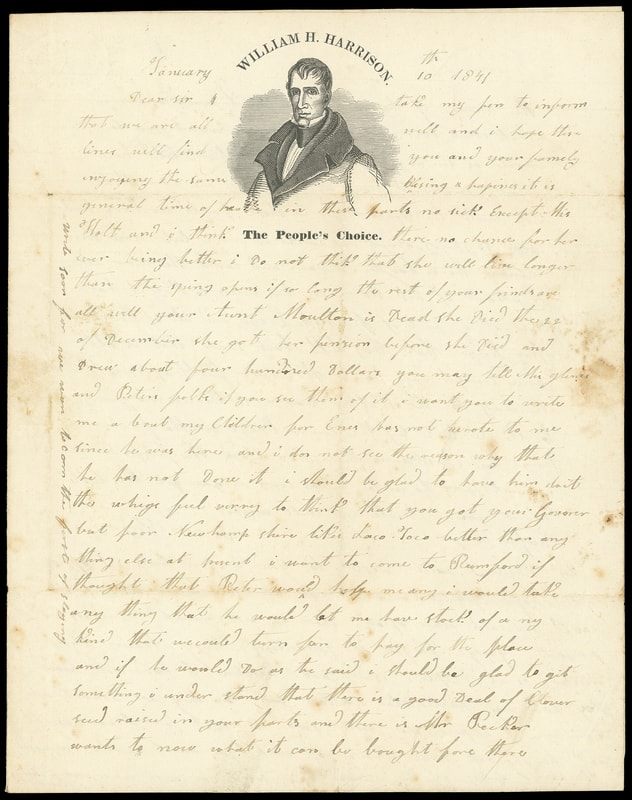 WILLIAM H. HARRISON.
January 10 th 1841
Dear sir I take my pen to inform
that we are all well and i hope the
lines will find you and your famely
injoying the same blesing & hapines it is
general time of in these parts no sick Except Mis
Holt and i think there no chance for her
The People's Choice.
ever being better i Do not think that she will live longer
than the spring opens if so long the rest of your frinds are
all well your Aunt Moulton is Dead she Died the 22
of December she got her pension before she Died and
Drew about four hundred Dollars you may tell Mis
and Peters folks if you see them of it i want you to write
me a bout my Children for Enos has not wrote to me
since he was here and i do not see the reason why that
he has not Done it i should be glad to have him
the whigs feel verrey to think that you got your Governer
but poor Newhampshire likes Loco Foco better than any
thing else at present i want to come to Rumford if
thought that Peter would help me any i would take
any thing that he would let me have stock of a ny
kind that we could turn for to pay for the place
and if he would Do as he said i should be glad to git
something i under stand that there is a good Deal of Clover
seed raised in your parts and there is Mr Pecker
wants to now what it can be bought fore there
write soon for we want to com the first of slaying